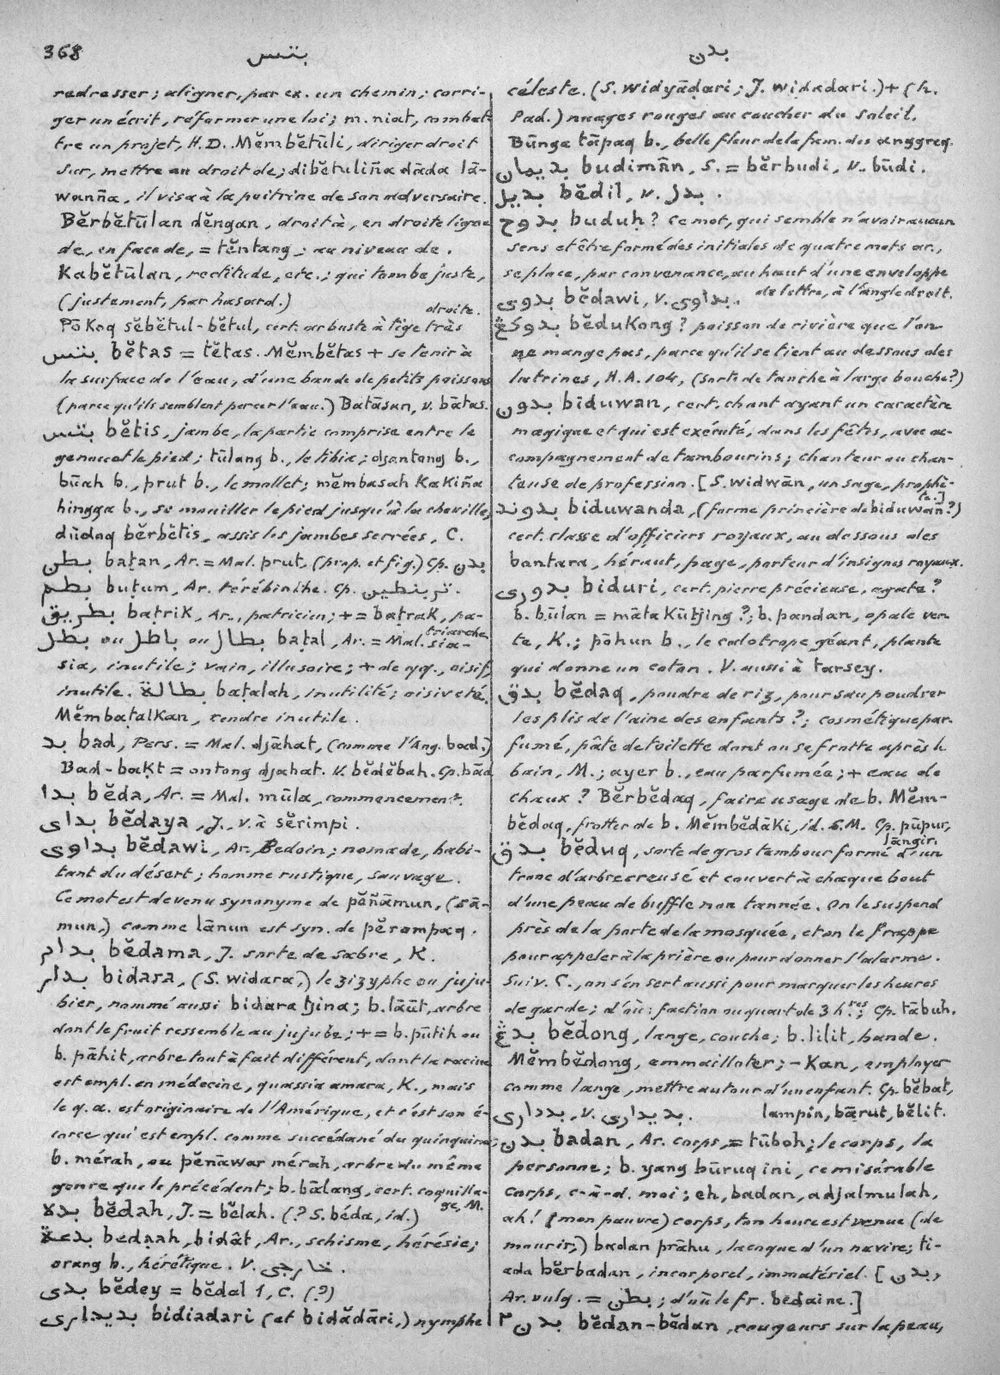 368 بتس بدن
redresser; aligner, par ex. un chemin; corri-
ger un écrit, réformer une loi; m. niat, combat-
tre un projet, H.D. Mĕmbĕtūli, diriger droit
sur, mettre au droit de; dibĕtuliña dāda lā-
wanña, il visa à la poitrine de son adversaire.
Bĕrbĕtūlan dĕngan, droit à, en droite ligne
de, en face de, = tĕntang; au niveau de.
Kabĕtūlan, rectitude, etc.; qui tombe juste,
(justement, par hasard.)
Pōkoq sĕbĕtul-bĕtul, cert. arbuste à tige très droite.
بتس bĕtas = tĕtas. Mĕmbĕtas + se tenir à
la surface de l'eau, d'une bande de petits poissons
(parce qu'ils semblent percer l'eau.) Batāsan, v. bātas.
بتس bĕtis, jambe, la partie comprise entre le
genou et le pied; tūlang b., le tibia; djantong b.,
būah b., prut b., le mollet; mĕmbasah kakiña
hingga b., se mouiller le pied jusqu'à la cheville;
dūdoq bĕrbĕtis, assis les jambes serrées, C.
بطن baṭan, Ar. = Mal. prut, (prop. et fig.) Cp. بدن
بطم buṭum, Ar. térébinthe. Cp. تربنطين.
بطريق baṭrik, Ar., patricien; + = baṭrak, pa-
triarche.
بطل ou باطل ou بطال baṭal, Ar. = Mal. sia-
sia, inutile; vain, illusoire; + de qq., oisif,
inutile. بطالة baṭalah, inutilité; oisiveté.
Mĕmbaṭalkan, rendre inutile.
بد bad, Pers. = Mal. djāhat, (comme l'Ang. bad.)
Bad-bakt = ontong djahat. V. bĕdĕbah. Cp. bād
بدا bĕda, Ar. = Mal. mūla, commencement.
بداى bĕdaya, J., v. à sĕrimpi.
بداوى bĕdawi, Ar., Bedoin; nomade, habi-
tant du désert; homme rustique, sauvage.
Ce mot est devenu synonyme de pĕñāmun, (sā-
mun,) comme lānun est syn. de pĕrompaq.
بدام bĕdama, J. sorte de sabre, K.
بدار bidara, (S. widara,) le zizyphe ou juju-
bier, nommé aussi bidara tjina; b. lāūt, arbre
dont le fruit ressemble au jujube; + = b. pūtih ou
b. pāhit, arbre tout à fait différent, dont la racine
est empl. en médecine, quassia amara, K., mais
le q. a. est originaire de l'Amérique, et c'est son é-
corce qui est empl. comme succédané du quinquina;
b. mérah, ou pĕnāwar mérah, arbre du même
genre que le précédent; b. bālang, cert. coquilla-
ge, M.
بده bĕdah, J. = bĕlah. (? S. béda, id.)
بدعة bedaah, bidāt, Ar., schisme, hérésie;
orang b., hérétique. V. خارجى.
بدى bĕdey = bĕdal 1, C. (?)
بديدارى bidiadari (et bidādāri,) nymphe
céleste. (S. widyāḍari; J. widadari.) + (h.
Pad.) nuages rouges au coucher du soleil.
Būnga tāpaq b., belle fleur de la fam. des anggreq.
بديمان budimān, S. = bĕrbudi, v. būdi.
بديل bĕdil, v. بدل.
بدوح buduḥ? ce mot, qui semble n'avoir aucun
sens et être formé des initiales de quatre mots ar.,
se place, par convenance, au haut d'une enveloppe
de lettre, à l'angle droit.
بدوى bĕdawi, v. بداوى.
بدوكڠ bĕdukong? poisson de rivière que l'on
ne mange pas, parce qu'il se tient au dessous des
latrines, H.A. 104, (sorte de tanche à large bouche?)
بدون biduwan, cert. chant ayant un caractère
magique et qui est exécuté, dans les fêtes, avec ac-
compagnement de tambourins; chanteur ou chan-
teuse de profession. [S. widwān, un sage, prophè-
te.]
بدوند biduwanda, (forme princière de biduwan?)
cert. classe d'officiers royaux, au dessous des
bantara, héraut, page, porteur d'insignes royaux.
بدورى biduri, cert. pierre précieuse, agate?
b. būlan = māta kūtjing?; b. pandan, opale ver-
te, K.; pōhun b., le calotrope géant, plante
qui donne un coton. V. aussi à tarsey.
بدق bĕdaq, poudre de riz, pour saupoudrer
les plis de l'aine des enfants?; cosmétique par-
fumé, pâte de toilette dont on se frotte après le
bain, M.; ayer b., eau parfumée; + eau de
chaux? Bĕrbĕdaq, faire usage de b. Mĕm-
bĕdaq, frotter de b. Mĕmbĕdāki, id. S.M. Cp. pūpur,
lāngir.
بدق bĕduq, sorte de gros tambour formé d'un
tronc d'arbre creusé et couvert à chaque bout
d'une peau de buffle non tannée. On le suspend
près de la porte de la mosquée, et on le frappe
pour appeler à la prière ou pour donner l'alarme.
Suiv. C., on s'en sert aussi pour marquer les heures
de garde; d'où: faction ou quart de 3 h.res; Cp. tābuh.
بدڠ bĕdong, lange, couche; b. lilit, bande.
Mĕmbĕdong, emmailloter; -kan, employer
comme lange, mettre autour d'un enfant. Cp. bĕbat,
lampin, bārut, bĕlit.
بددارى, v. بديدارى.
بدن badan, Ar. corps, = tūboh; le corps, la
personne; b. yang būruq ini, ce misérable
corps, c-à-d. moi; eh, badan, adjalmulah,
ah! (mon pauvre) corps, ton heure est venue (de
mourir,) badan prāhu, la coque d'un navire; ti-
ada bĕrbadan, incorporel, immatériel. [بدن,
Ar. vulg. = بطن; d'où le fr. bedaine.]
بدن٢ bĕdan-bĕdan, rougeurs sur la peau,